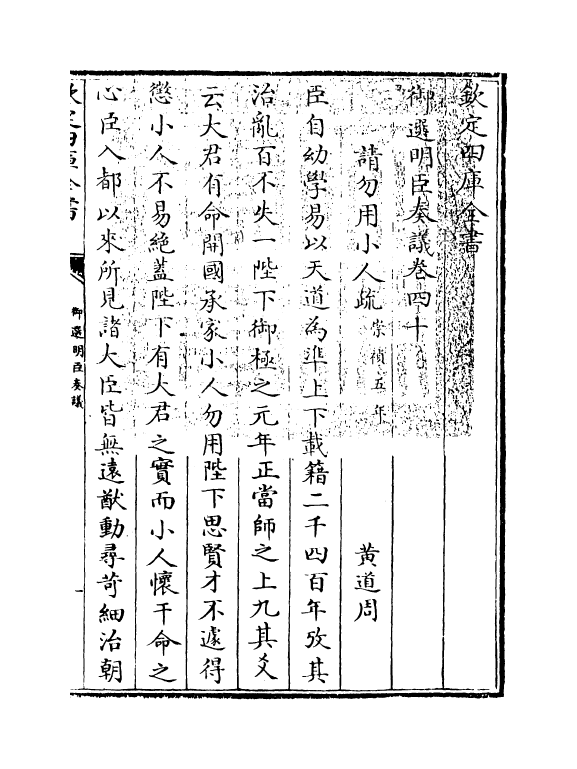 欽定四庫全書
御選明臣奏議卷四十
請勿用小人疏崇禎五年 黃道周
臣自幼學易以天道為凖上下載籍二千四百年攷其
治亂百不失一陛下御極之元年正當師之上九其爻
云大君有命開國承家小人勿用陛下思賢才不遽得
懲小人不易絶蓋陛下有大君之實而小人懷干命之
心臣入都以來所見諸大臣皆無遠猷動尋苛細治朝
欽定四庫全書
御選明臣奏議
一